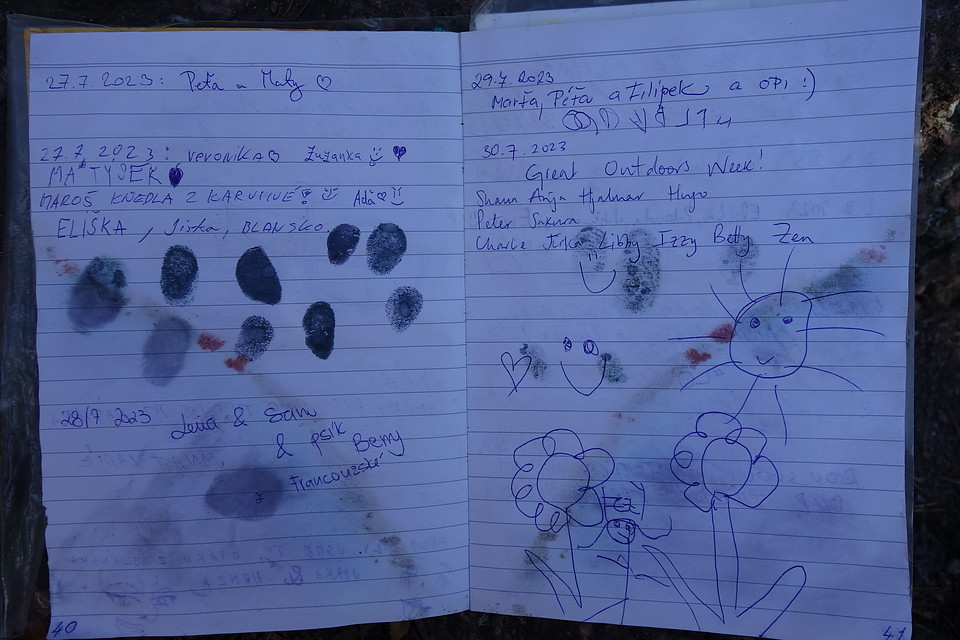 27.7.2023: Peťa a Maty ♡
27.7.2023: veronika♡ Zuzanka ♥
MATÝSEK
MAROŠ KNEDLA Z KARVINÉ Ada♡
ELIŠKA, Jiska, BLANSKO.
28/7 2023
& Sam
& psik Berry
Francouzské
40
29.7.2023
Marťa, Péťa a Filípek a OPI :)
30.7.2023
Great Outdoors Week!
Shaun Anja Hjalmar Hugo
Peter Sakura
Charlie Jirka Libby Izzy Betty Zen
41